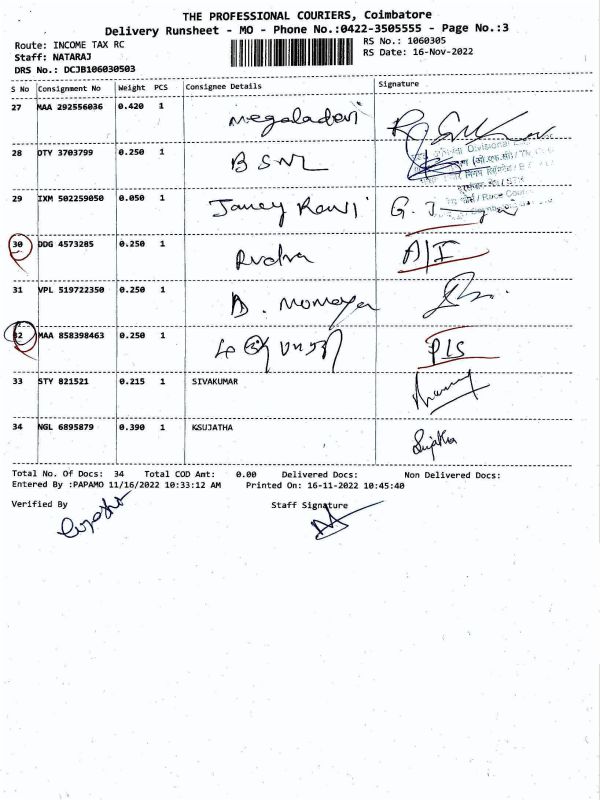 THE PROFESSIONAL COURIERS, Coimbatore
Delivery Runsheet - MO - Phone No.:0422-3505555 - Page No.:3
Route: INCOME TAX RC RS No.: 1060305
Staff: NATARAJ RS Date: 16-Nov-2022
DRS No.: DCJB106030503
S No Consignment No Weight PCS Consignee Details Signature
27 MAA 292556036 0.420 1 Megaladevi
28 DTY 3703799 0.250 1 BSNL
Divisional
29 IXM 502259050 0.050 1
/ Race Course
30 DDG 4573285 0.250 1 Rudra A/I
31 VPL 519722350 0.250 1
32 MAA 858398463 0.250 1 P/S
33 STY 821521 0.215 1 SIVAKUMAR
34 NGL 6895879 0.390 1 KSUJATHA Sujatha
Total No. Of Docs: 34 Total COD Amt: 0.00 Delivered Docs: Non Delivered Docs:
Entered By :PAPAMO 11/16/2022 10:33:12 AM Printed On: 16-11-2022 10:45:40
Verified By Staff Signature